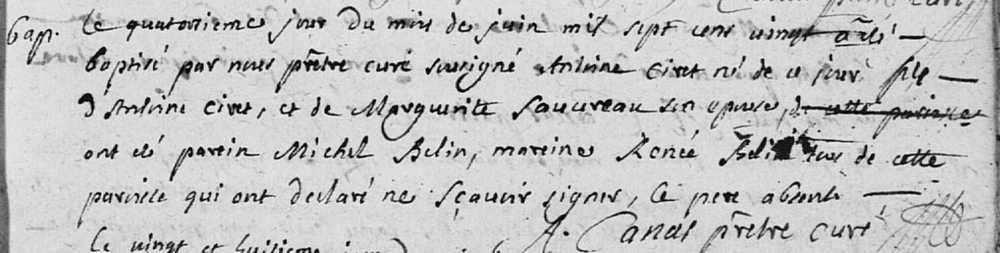 Bap.
Le quatorsieme jour du mois de juin mil sept cens vingt a été
baptisé par nous prêtre curé sousigné Antoine Ciret né de ce jour fils
d Antoine Ciret, et de Marguerite Sauvreau son epouse, de cette paroisse
ont été parein Michel Belin, mareine Renée Belin tous de cette
paroisse qui ont declaré ne sçavoir signer, Le pere absent
A. Canal prêtre curé
Le vingt et huitieme jour